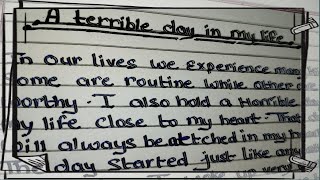 A terrible day in my life.
In our lives we experience man
some are routine while other
worthy. I also hold a Horrible
my life close to my heart. That
will always be attched in my
day started just like any